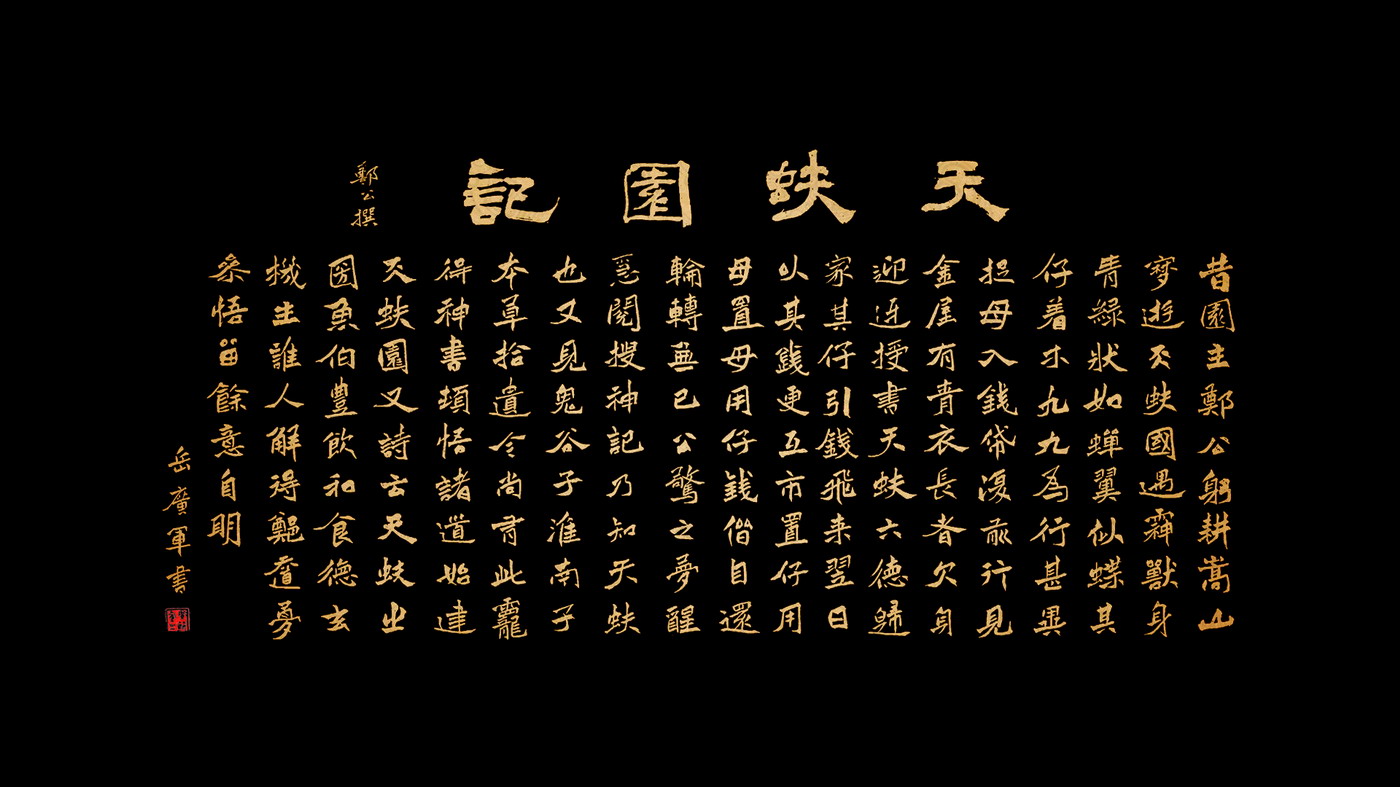 天蚨園記
鄭公撰
昔園主鄭公躬耕嵩山
夢遊天蚨國遇獸身
青綠狀如蟬翼似蝶其
仔着木九九為行甚異
捉母入錢帒復前行見
金屋有青衣長者欠身
迎迓授書天蚨六德歸
家其仔引錢飛来翌日
以其錢更互市置仔用
母置母用仔錢偕自還
輪轉無已公驚之夢醒
覓閱搜神記乃知天蚨
也又見鬼谷子淮南子
本草拾遺令尚有此
得神書頃悟諸道始建
天蚨園又詩云天蚨出
魚伯豐飲和食德玄
機生誰人解得夢
叅悟畱餘意自明
岳廣軍書